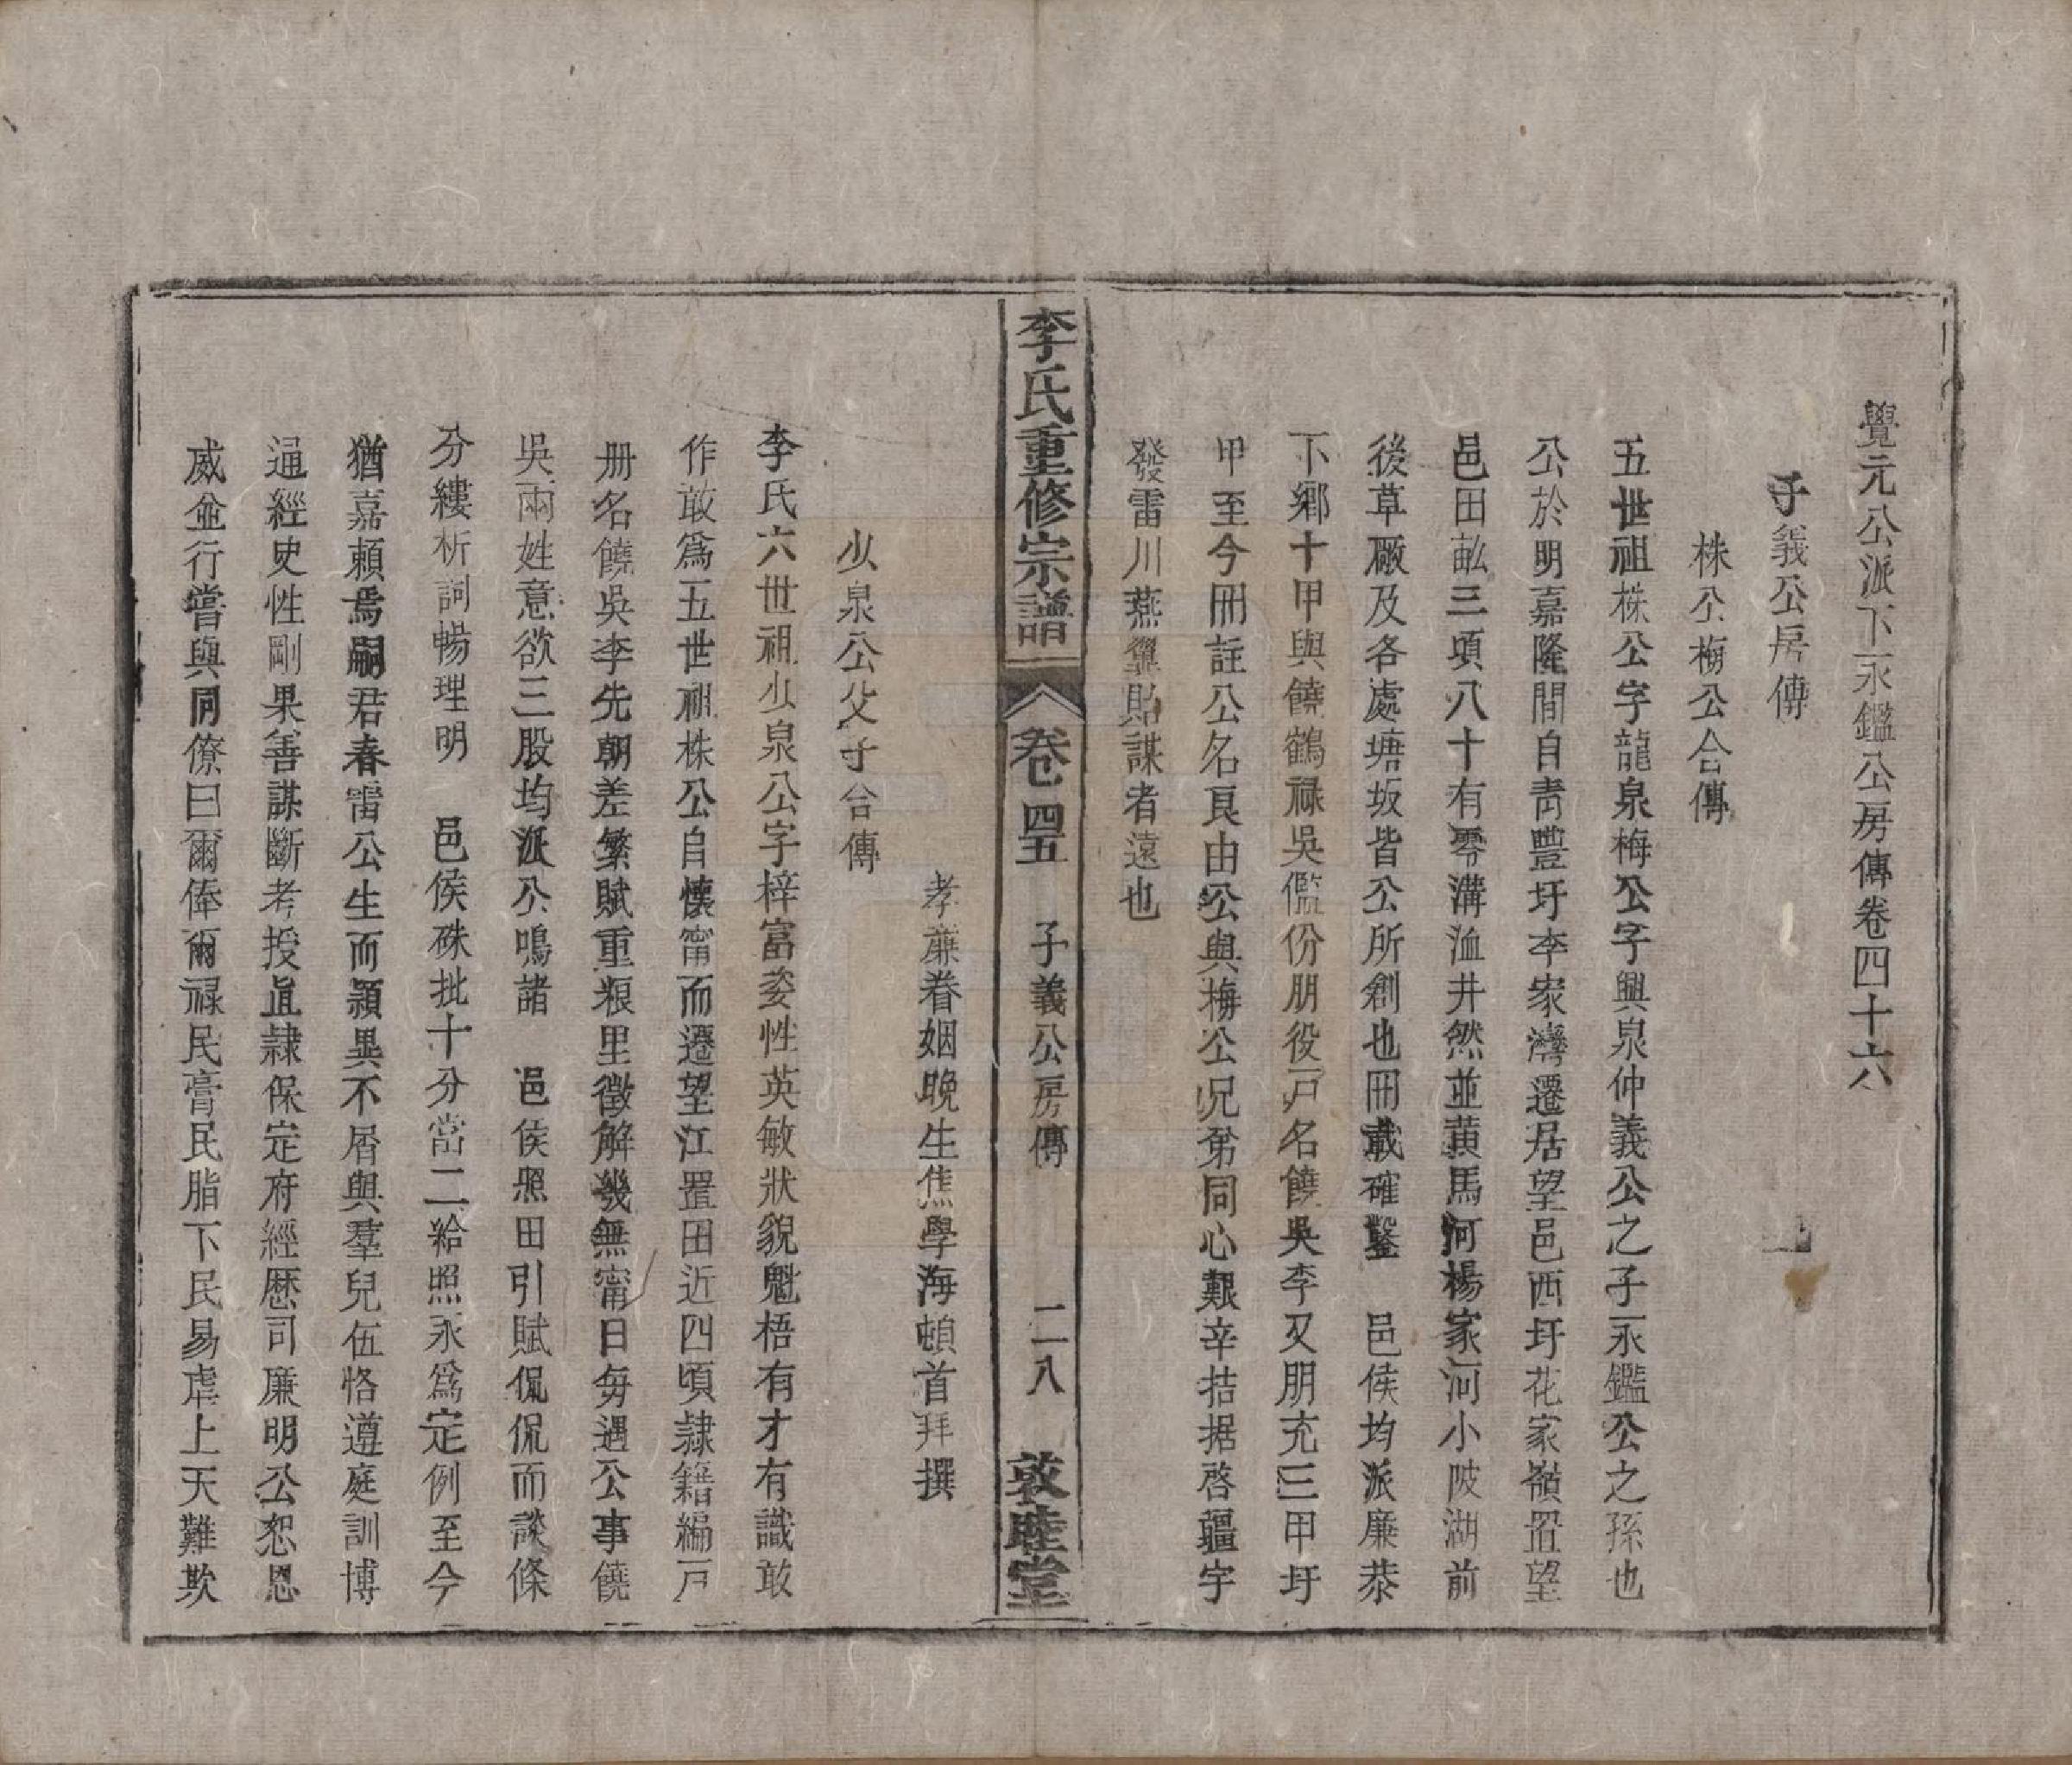 覺元公派下永鑑公房傳卷四十六
子義公房傳
株公梅公合傳
五世祖株公字龍泉梅公字興泉仲義公之子永鑑公之孫也
公於明嘉隆間自青豐圩李家灣遷居望邑西圩花家嶺置望
邑田畝三頃八十有零溝洫井然並黃馬河楊家河小陂湖前
後草廠及各處塘坂皆公所創也冊載確鑿 邑侯均派廉恭
下鄉十甲與饒鶴祿吳儖份朋役戶名饒吳李又朋充三甲圩
甲至今冊註公名良由公與梅公兄弟同心艱辛拮据啓疆宇
發雷川燕翼貽謀者遠也
李氏重修宗譜
卷四五 子義公房傳 二八 敦睦堂
孝廉眷姻晚生焦學海頓首拜撰
少泉公父子合傳
李氏六世祖少泉公字梓富姿性英敏狀貌魁梧有才有識敢
作敢爲五世祖株公自懷甯而遷望江置田近四頃隸籍編戶
册名饒吳李先朝差繁賦重糧里徵解幾無甯日每遇公事饒
吳兩姓意欲三股均派公鳴諸 邑侯照田引賦侃侃而談條
分縷析詞暢理明 邑侯硃批十分當二給照永爲定例至今
猶嘉賴焉嗣君春雷公生而穎異不屑與羣兒伍恪遵庭訓博
通經史性剛果善謀斷考授直隸保定府經歷司廉明公恕恩
威並行嘗與同僚曰爾俸爾祿民膏民脂下民易虐上天難欺